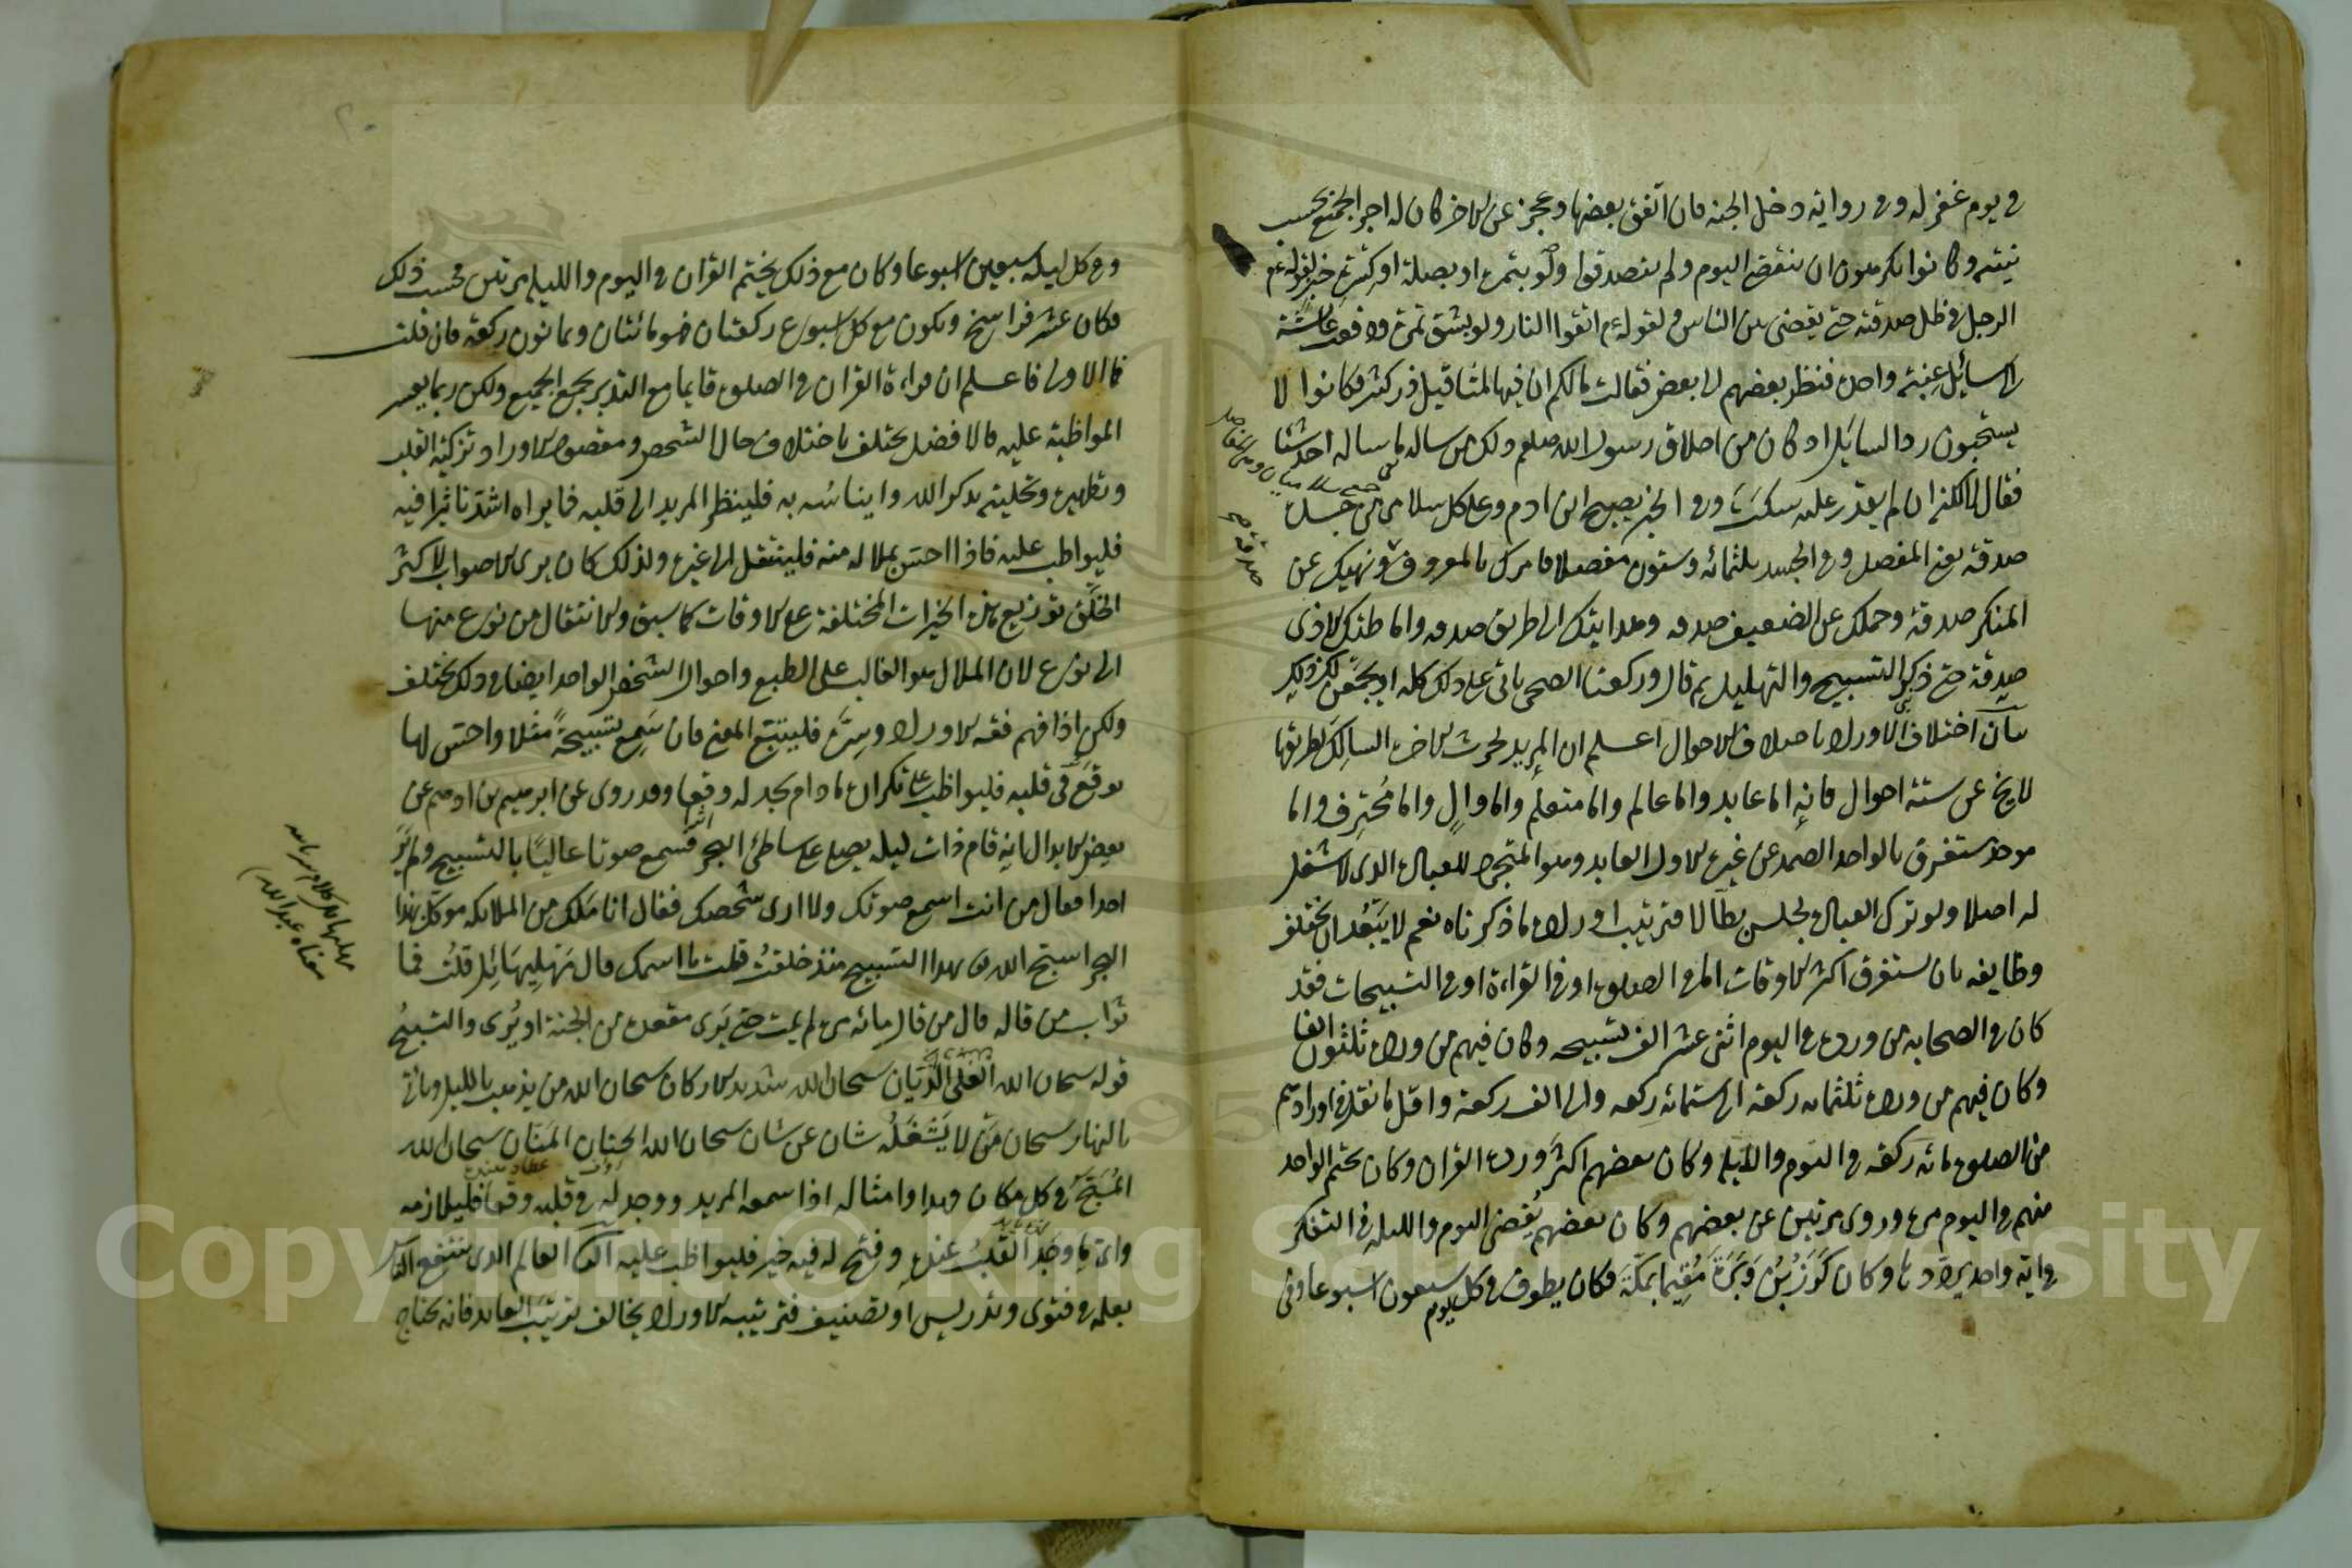 في يوم غفر له وفي رواية دخل الجنة فان اتفق بعضها وعجز عن الاخر كان له اجر الجميع بحسب
نيته وكانوا يكرهون ان ينقضي اليوم ولم يتصدقوا ولو بتمرة او بصلة او كسرة خبز لقوله عم
الرجل في ظل صدقته حتى يقضى بين الناس ولقوله عم اتقوا النار ولو بشق تمرة ودفعت عائشة
الى سائل عنبة واحدة فنظر بعضهم الى بعض فقالت مالكم ان فيها لمثاقيل ذر كثير فكانوا لا
يستحبون رد السايل اذ كان من اخلاق رسول الله صلعم ذلك ما ساله احد شيئا
فقال لا لكنه ان لم يقدر عليه سكت وفي الخبر يصبح ابن ادم وعلى كل سلامى من جسده
صدقة يعني المفصل وفي الجسد ثلثمائه وستون مفصلا فامرك بالمعروف ونهيك عن
المنكر صدقة وحملك عن الضعيف صدقه وهدايتك الى الطريق صدقه واماطتك الاذى
صدقة حتى ذكر التسبيح والتهليل ثم قال وركعتا الضحى ياتي على ذلك كله او يجمعن لك ذلك
بيان اختلاف الاوراد باختلاف الاحوال اعلم ان المريد لحرث الاخرة السالك لطريقها
لا يخ عن ستة احوال فانه اما عابد واما عالم واما متعلم واما وال واما محترف واما
موحد مستغرق بالواحد الصمد عن غيره الاول العابد وهو المتجرد للعبادة الذي لا شغل
له اصلا ولو ترك العبادة لجلس بطالا فترتيب اوراده ما ذكرناه نعم لا يبعد ان يختلف
وظايفه بان يستغرق اكثر الاوقات اما في الصلوة او في القراءة او في التسبيحات فقد
كان في الصحابه من ورده في اليوم اثنى عشر الف تسبيحه وكان فيهم من ورده ثلثون الفا
وكان فيهم من ورده ثلثمائه ركعة الى ستمائه ركعه والى الف ركعة واقل ما نقل في اورادهم
من الصلوة مائه ركعة في اليوم والليلة وكان بعضهم اكثر ورده القران وكان يختم الواحد
منهم في اليوم مرة وروى مرتين عن بعضهم وكان بعضهم يقضي اليوم والليله في التفكر
في اية واحدة يرددها وكان كرز بن وبرة مقيما بمكة فكان يطوف في كل يوم سبعون اسبوعا وفي
صدقة صح
وفي كل ليله سبعين اسبوعا وكان مع ذلك يختم القران في اليوم والليله مرتين فحسب ذلك
فكان عشر فراسخ ويكون مع كل اسبوع ركعتان فهو مائتان وثمانون ركعة فان قلت
فما الاولى فاعلم ان قراءة القران في الصلوة قايما مع التدبر يجمع الجميع ولكن ربما يعسر
المواظبة عليه فالافضل يختلف باختلاف حال الشخص ومقصود الاوراد تزكية القلب
وتطهيره وتحليته بذكر الله وايناسه به فلينظر المريد الى قلبه فما يراه اشد تاثيرا فيه
فليواظب عليه فاذا احس بملاله منه فلينتقل الى غيره ولذلك كان يرى الاصواب لاكثر
الخلق توزيع هذه الخيرات المختلفة على الاوقات كما سبق والانتقال من نوع منها
الى نوع لان الملال هو الغالب على الطبع واحوال الشخص الواحد ايضا في ذلك تختلف
ولكن اذا فهم فقه الاوراد وسره فليتبع المعنى فان سمع تسبيحة مثلا واحس لها
بوقع في قلبه فليواظب على تكرارها مادام يجد له وقعا وقد روى عن ابرهيم بن ادهم عن
بعض الابدال انه قام ذات ليله يصلي على ساطئ البحر فسمع صوتا عاليا بالتسبيح ولم ير
احدا فقال من انت اسمع صوتك ولا ارى شخصك فقال انا ملك من الملائكه موكل بهذا
البحر اسبح الله تع بهذا التسبيح منذ خلقت قلت ما اسمك قال مهليهائل قلت فما
ثواب من قاله قال من قال مائه مرة لم يمت حتى يرى مقعده من الجنة او يرى والتسبيح
قوله سبحان الله العلي الديان سبحان الله شديد الاركان سبحان الله من يذهب بالليل وياتي
بالنهار سبحان من لا يشغله شان عن شان سبحان الله الحنان المنان سبحان الله
المسبح في كل مكان وهذا وامثاله اذا سمعه المريد ووجد له في قلبه وقعا فليلازمه
وايا ما وجد القلب عنده وفتح له فيه خير فليواظب عليه الثاني العالم الذي ينتفع الناس
بعلمه في فتوى وتدريس او تصنيف فترتيبه الاوراد يخالف ترتيب العابد فانه يحتاج
معناه عبد الله